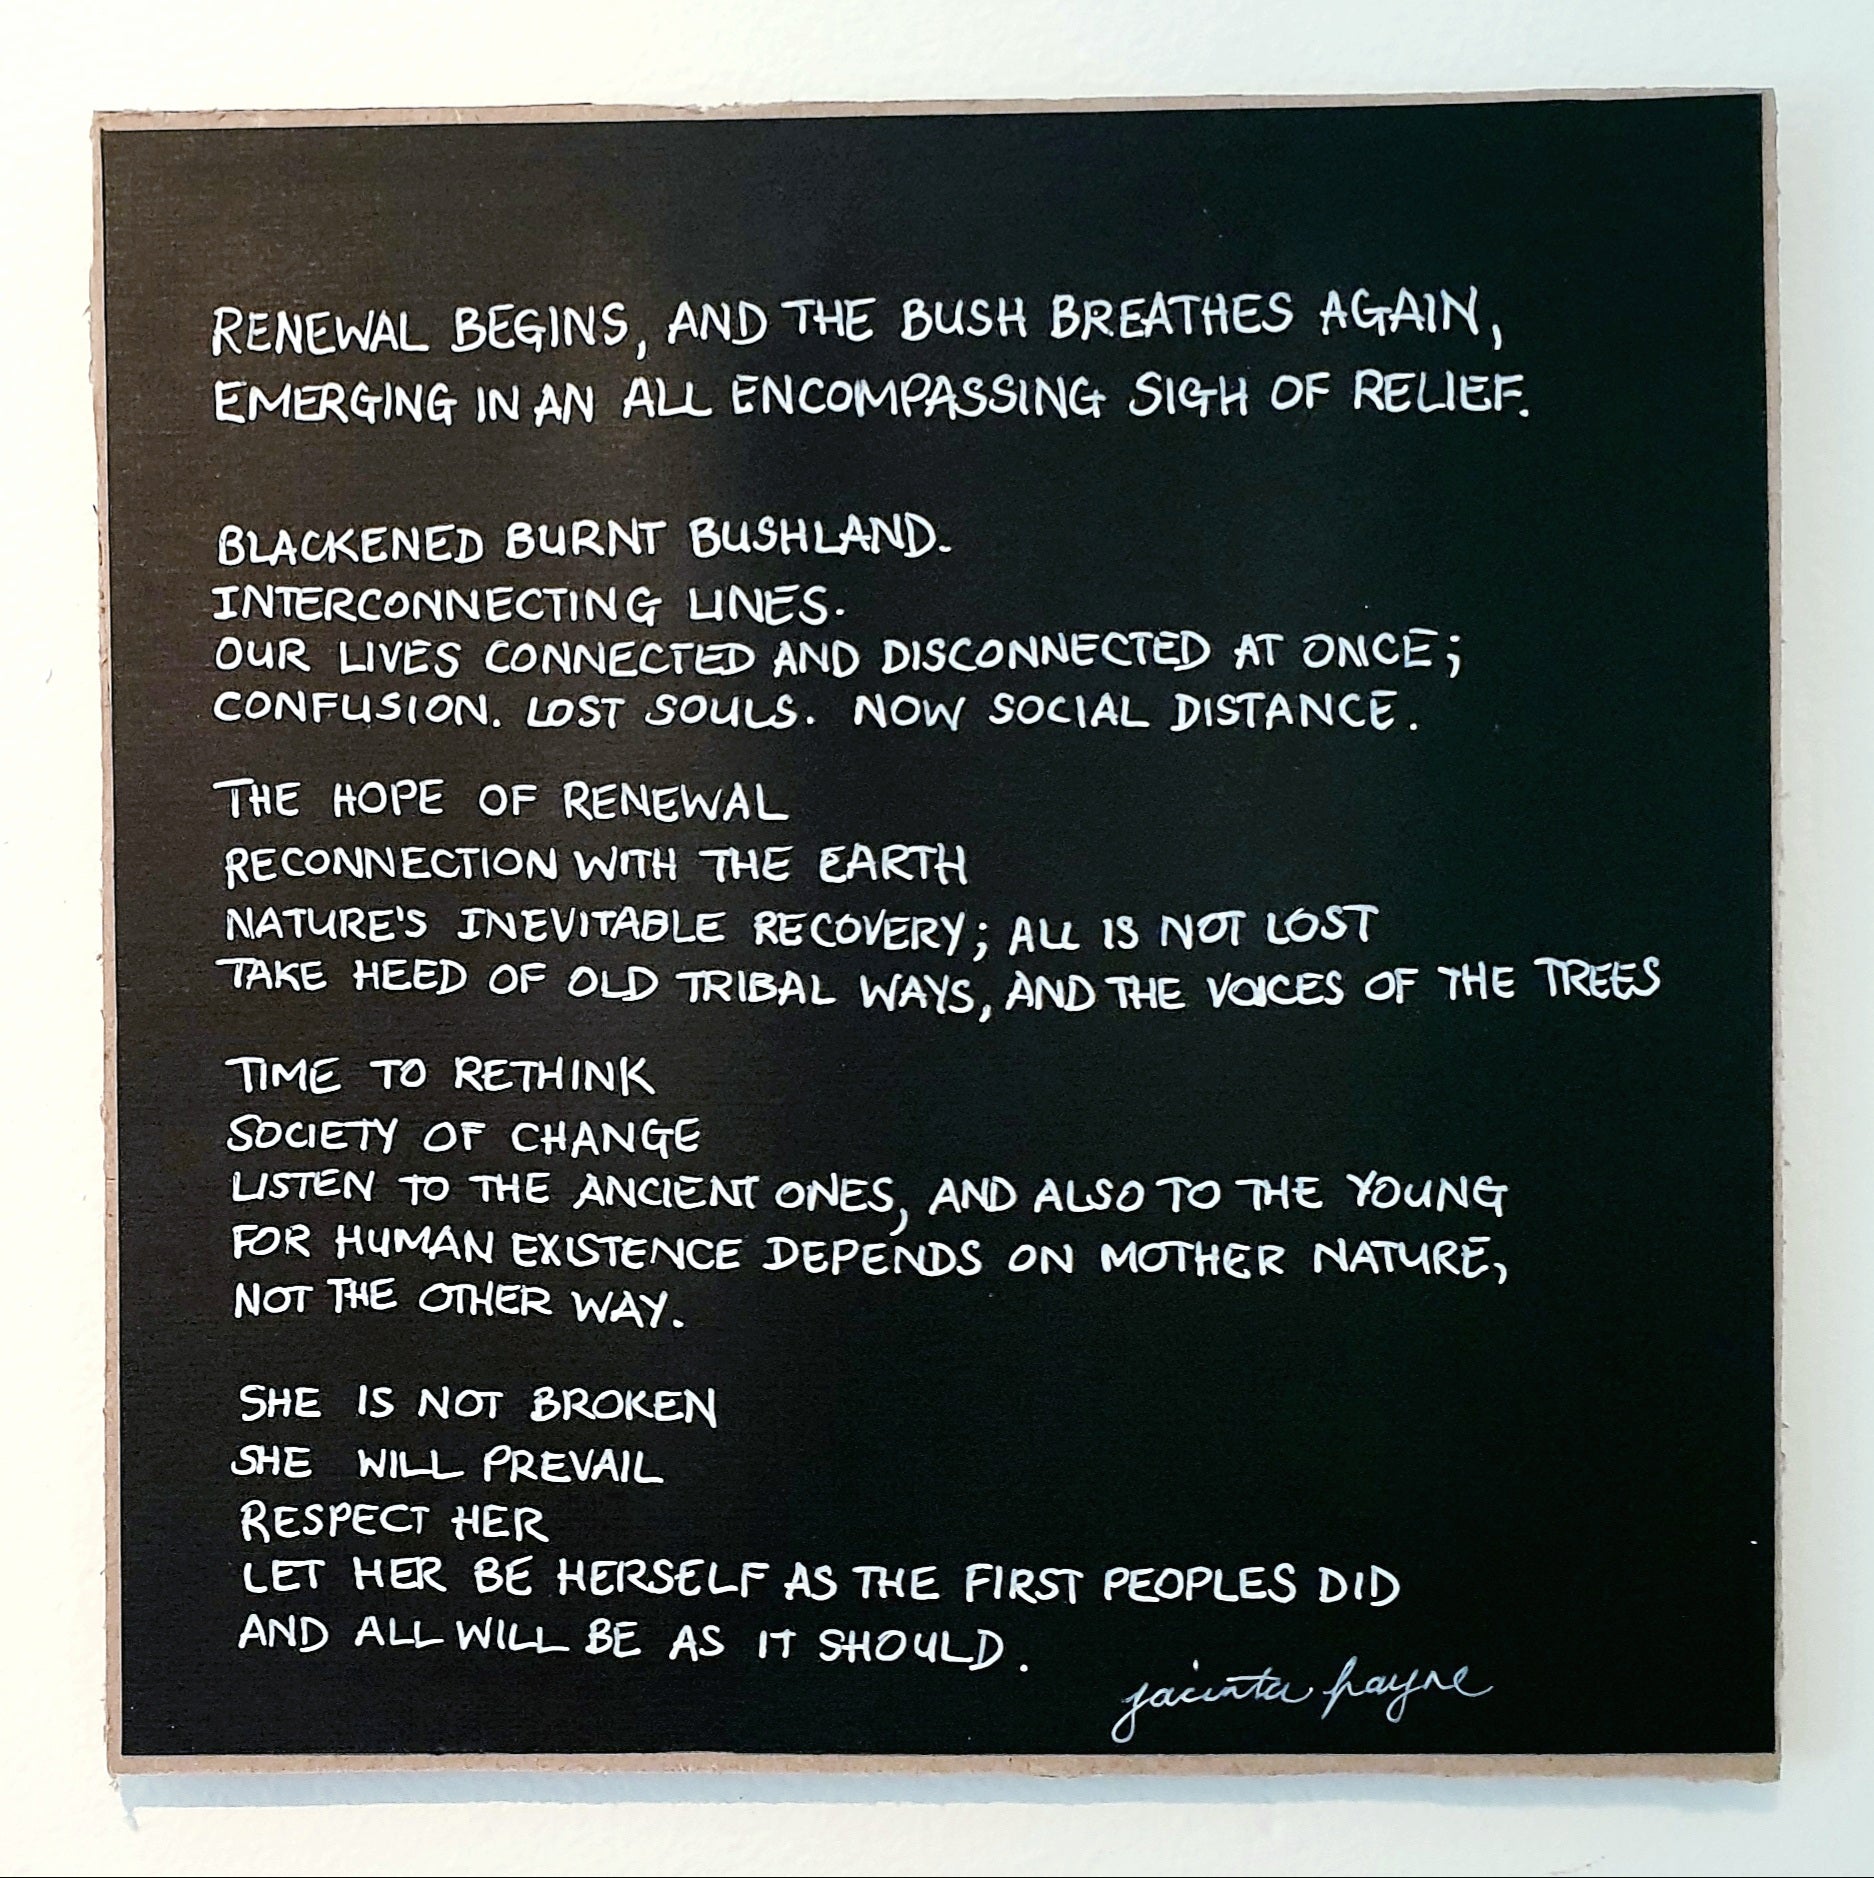 RENEWAL BEGINS, AND THE BUSH BREATHES AGAIN,
EMERGING IN AN ALL ENCOMPASSING SIGH OF RELIEF.
BLACKENED BURNT BUSHLAND.
INTERCONNECTING LINES.
OUR LIVES CONNECTED AND DISCONNECTED AT ONCE;
CONFUSION. LOST SOULS. NOW SOCIAL DISTANCE.
THE HOPE OF RENEWAL
RECONNECTION WITH THE EARTH
NATURE'S INEVITABLE RECOVERY; ALL IS NOT LOST
TAKE HEED OF OLD TRIBAL WAYS, AND THE VOICES OF THE TREES
TIME TO RETHINK
SOCIETY OF CHANGE
LISTEN TO THE ANCIENT ONES, AND ALSO TO THE YOUNG
FOR HUMAN EXISTENCE DEPENDS ON MOTHER NATURE,
NOT THE OTHER WAY.
SHE IS NOT BROKEN
SHE WILL PREVAIL
RESPECT HER
LET HER BE HERSELF AS THE FIRST PEOPLES DID
AND ALL WILL BE AS IT SHOULD.
jacinta payne